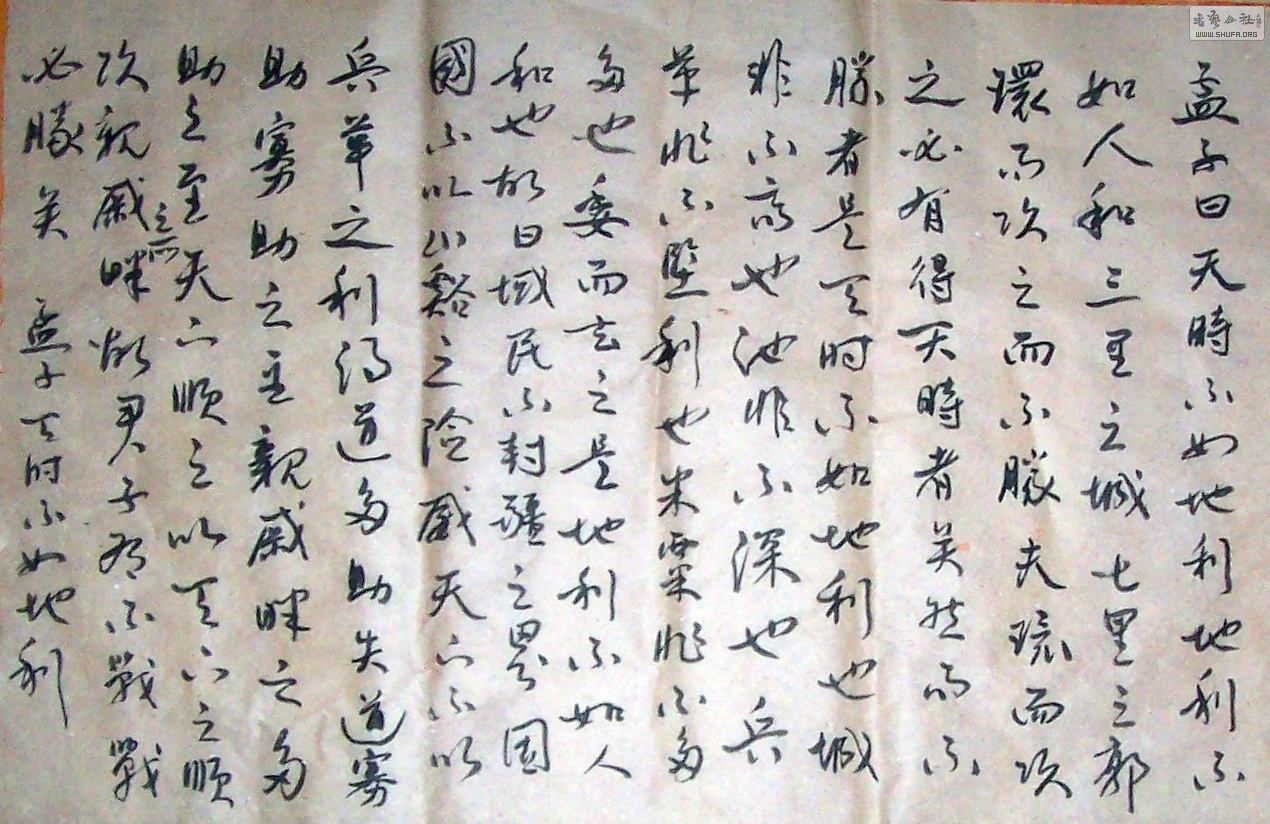 孟子曰天時不如地利地利不
如人和三里之城七里之郭
環而攻之而不勝夫環而攻
之必有得天時者矣然而不
勝者是天时不如地利也城
非不高也池非不深也兵
革非不堅利也米粟非不多
多也委而去之是地利不如人
和也故曰域民不封疆之界固
國不以山谿之险威天下不以
兵革之利得道多助失道寡
助寡助之至親戚畔之多
助之至天下順之以天下之順
攻親戚之所畔故君子有不戰戰
必勝矣 孟子天时不如地利
書藝公社
WWW.SHUFA.ORG